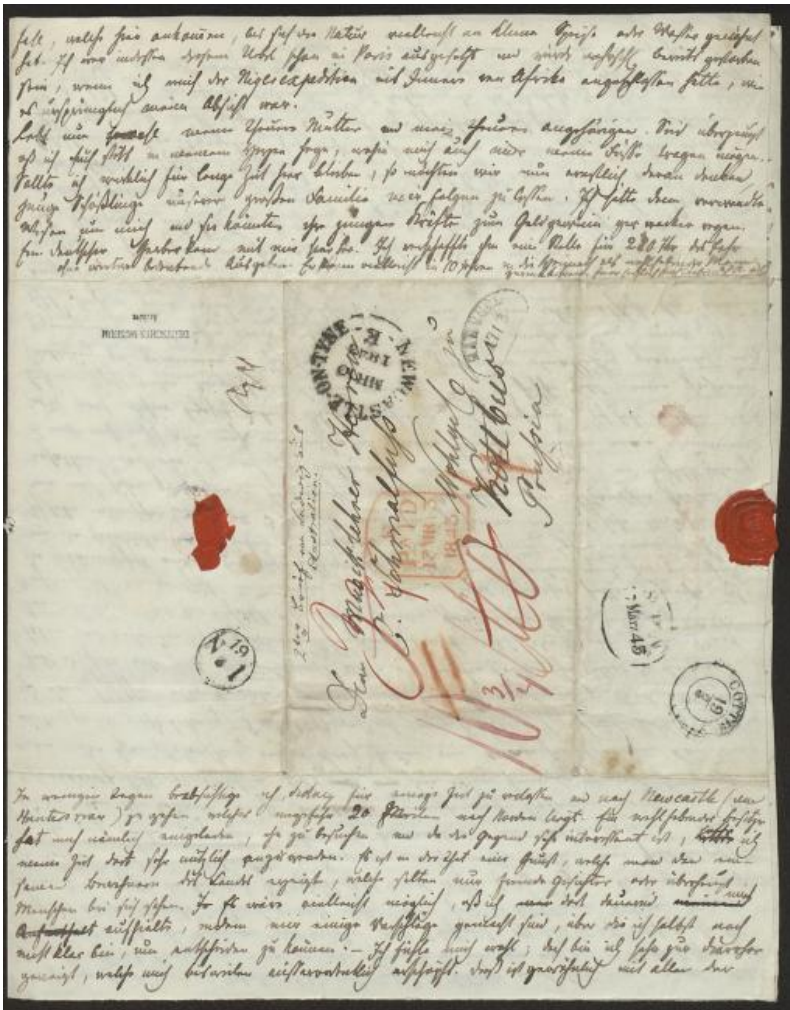 fall, welche hier ankommen, bis sich die Natur vielleicht an Klima Speise oder Wasser gewöhnt
hat. Ich war indessen diesem Uebel schon in Paris ausgesetzt und würde wahrscheinlich bereits gestorben
sein, wenn ich mich der Nigerexpedition ins Innere von Afrika angeschlossen hätte, wie
es ursprünglich meine Absicht war.
Lebt nun wohl meine theuere Mutter und meine theuern Angehörigen. Seid überzeugt
daß ich Euch stets in meinem Herzen trage, wohin mich auch meine Füße tragen mögen.
Sollte ich wirklich für lange Zeit hier bleiben, so möchten wir nun ernstlich daran denken,
junge Schößlinge unserer großen Familie mir folgen zu lassen. Ich hätte dann verwandte
Wesen um mich und sie könnten ihre jungen Kräfte zum Geldgewinn gar wacker regen.
Ein deutscher Gerber kam mit mir hierher. Ich verschaffte ihm eine Stelle für 280 Thr des Jahr
ohne weitere bedeutende Ausgaben. Er kann vielleicht in 10 Jahren
NEWCASTLE-ON-TYNE
MR 10
184
K
2ter Brief von Ludwig aus
Australien.
Dem Musiklehrer Herrn
C. Schmalfuss
Wohlgeb
in
Kottbus
Prussia
PAID
1843
10 3/4
N 1
19
St P
17 März 43
COTTBUS
19
In wenigen Tagen beabsichtige ich, Sidney für einige Zeit zu verlassen und nach Newcastle (am
Hunters river) zu gehen welches ungefähr 20 Meilen nach Norden liegt. Ein wohlhabender Besitzer
hat mich nämlich eingeladen, ihn zu besuchen und da die Gegend sehr interessant ist, ich
meine Zeit dort sehr nützlich anzuwenden. Es ist in der That eine Gunst, welche man den
Bewohnern des Landes erzeigt, welche selten nur fremde Gesichter oder überhaupt
Menschen bei sich sehen. Ja es wäre vielleicht möglich, daß ich dort dauernd mich
aufhielte, indem mir einige Vorschläge gemacht sind, über die ich selbst noch
nicht klar bin, um entscheiden zu können. – Ich fühle mich wohl; doch bin ich sehr zur Diarrhoe
geneigt, welche mich bisweilen ausserordentlich erschöpft. Dieß ist gewöhnlich mit allen der